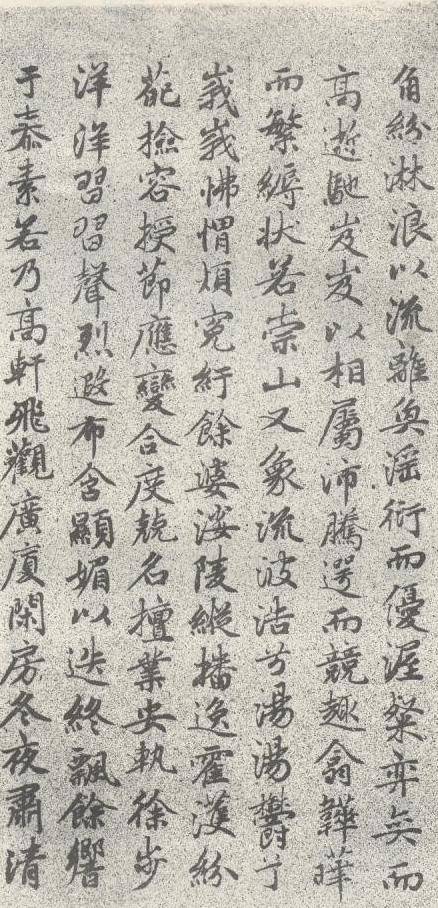 角紛淋浪以流離奐淫衍而優渥粲弈矣而
高逝馳岌岌以相屬沛騰遌而競趣翕韡曄
而繁縟狀若崇山又象流波浩兮湯湯欝兮
峩峩怫㥜煩寃紆餘婆娑陵縱播逸霍濩紛
葩撿容授節應變合度兢名擅業安軌徐步
洋洋習習聲烈遐布含顯媚以送終飄餘響
于泰素若乃高軒飛觀廣廈閑房冬夜肅清